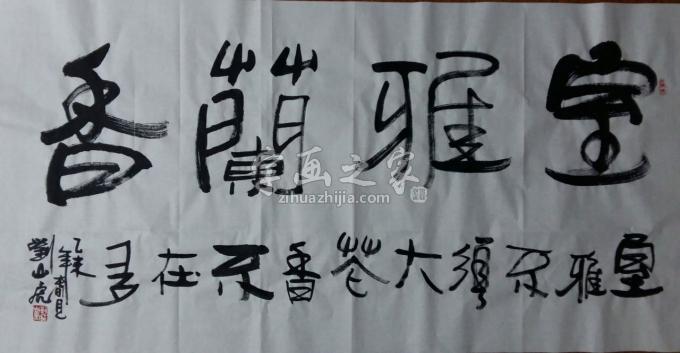 室雅蘭香
室雅不須大花香不在多
乙未年春月
字画之家
zihuazhijia.com